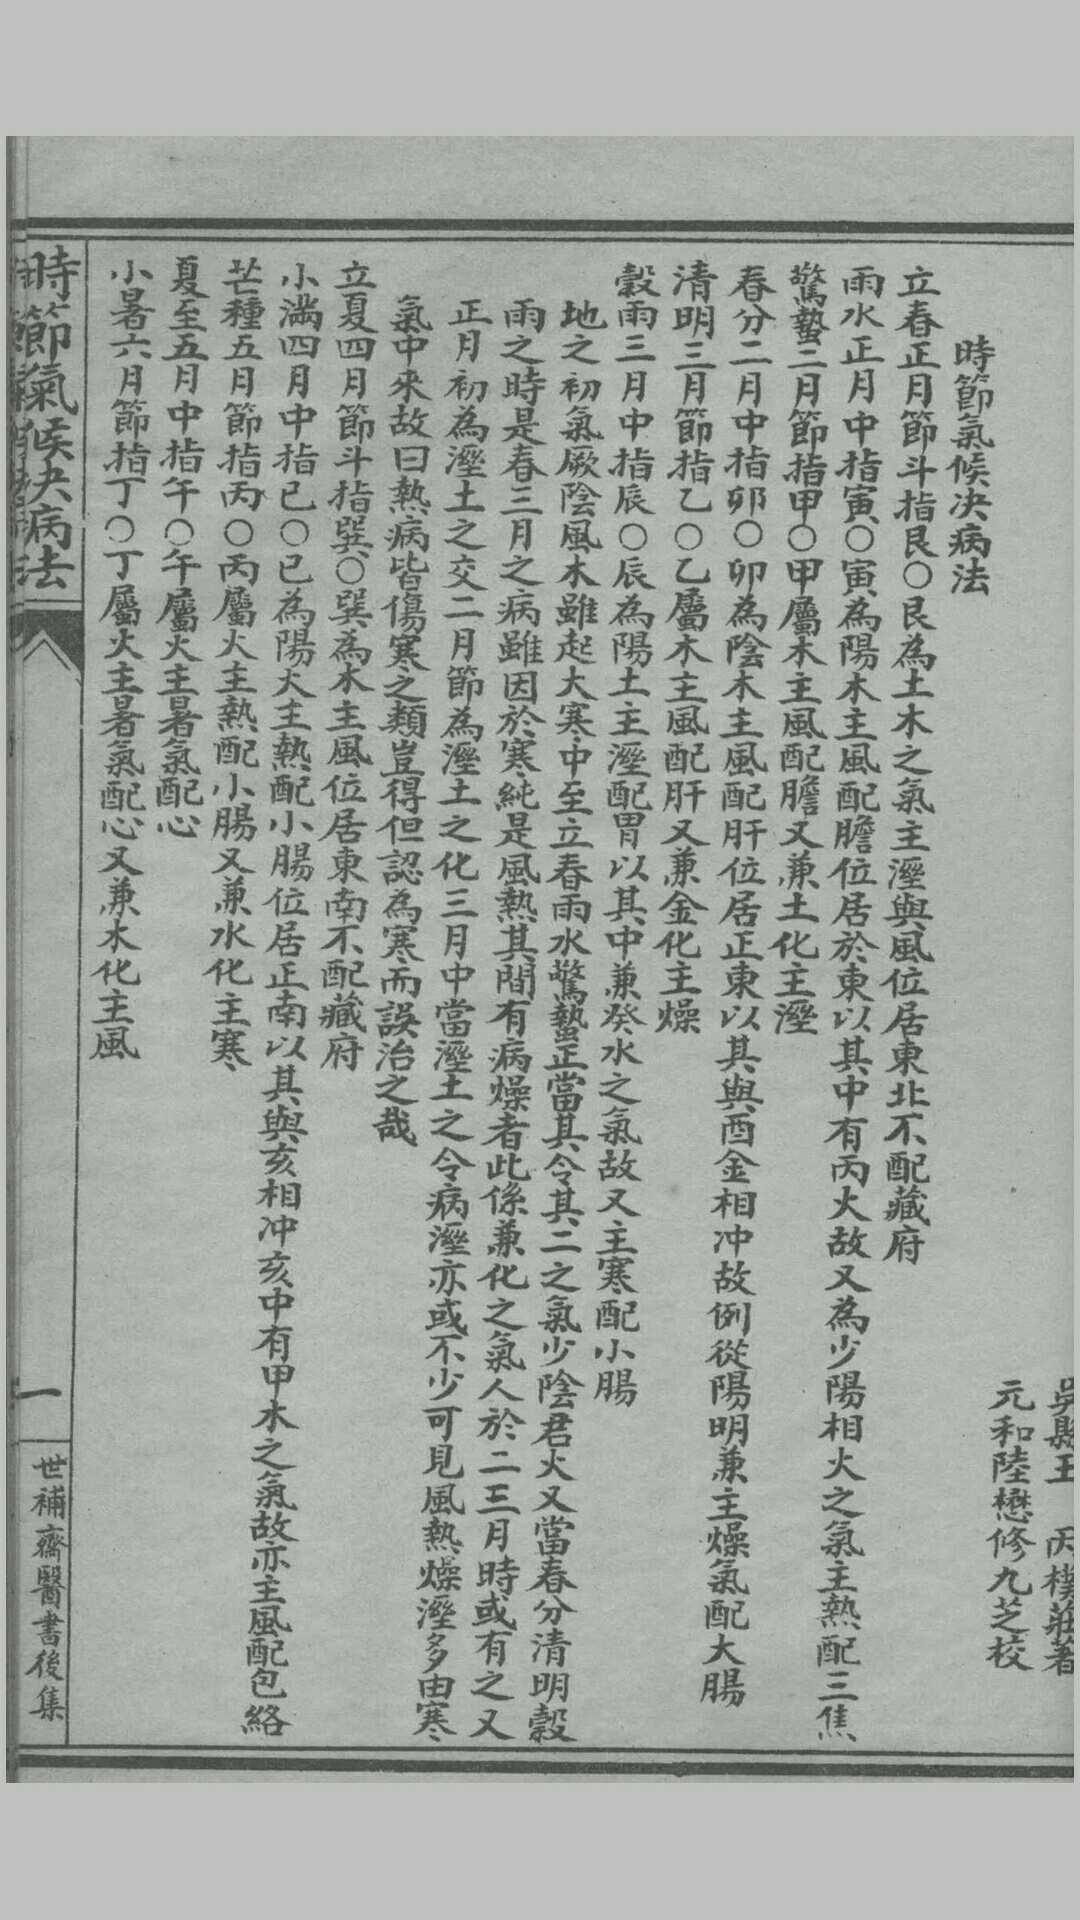 吳縣王 丙樸莊著
元和陸懋修九芝校
時節氣候决病法
立春正月節斗指艮○艮為土木之氣主溼與風位居東北不配藏府
雨水正月中指寅○寅為陽木主風配膽位居於東以其中有丙火故又為少陽相火之氣主熱配三焦
驚蟄二月節指甲○甲屬木主風配膽又兼土化主溼
春分二月中指卯○卯為陰木主風配肝位居正東以其與酉金相冲故例從陽明兼主燥氣配大腸
清明三月節指乙○乙屬木主風配肝又兼金化主燥
穀雨三月中指辰○辰為陽土主溼配胃以其中兼癸水之氣故又主寒配小腸
地之初氣厥陰風木雖起大寒中至立春雨水驚蟄正當其令其二之氣少陰君火又當春分清明穀
雨之時是春三月之病雖因於寒純是風熱其間有病燥者此係兼化之氣人於二三月時或有之又
正月初為溼土之交二月節為溼土之化三月中當溼土之令病溼亦或不少可見風熱燥溼多由寒
氣中來故曰熱病皆傷寒之類豈得但認為寒而誤治之哉
立夏四月節斗指巽○巽為木主風位居東南不配藏府
小滿四月中指已○已為陽火主熱配小腸位居正南以其與亥相冲亥中有甲木之氣故亦主風配包絡
芒種五月節指丙○丙屬火主熱配小腸又兼水化主寒
夏至五月中指午○午屬火主暑氣配心
小暑六月節指丁○丁屬火主暑氣配心又兼木化主風
時節氣候决病法
一
世補齋醫書後集